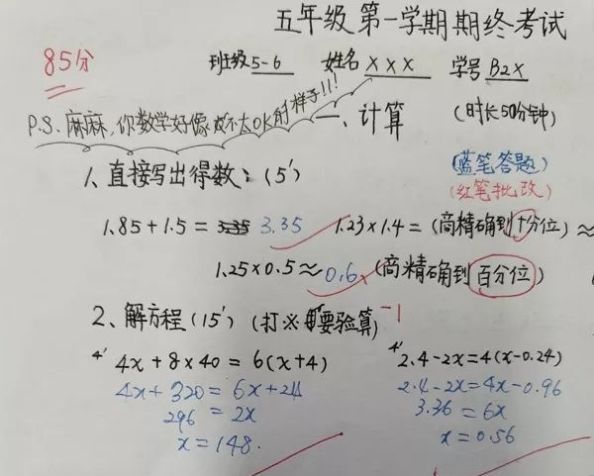 五年级第一学期期终考试
85分
班级5-6 姓名XXX 学号B2X
P.S.麻麻,你数学好像不太OK的样子!!!
一、计算 (时长50分钟)
(蓝笔答题)
(红笔批改)
1、直接写出得数:(5')
1.85+1.5= 3.35 1.23×1.4=(商精确到十分位)≈
1.25×0.5≈0.6 (商精确到百分位)
2、解方程(15')(打※要验算) -1
4' 4x+8×40=6(x+4) 4' 2.4-2x=4(x-0.24)
4x+320=6x+24 2.4-2x=4x-0.96
296=2x 3.36=6x
x=148. x=0.56